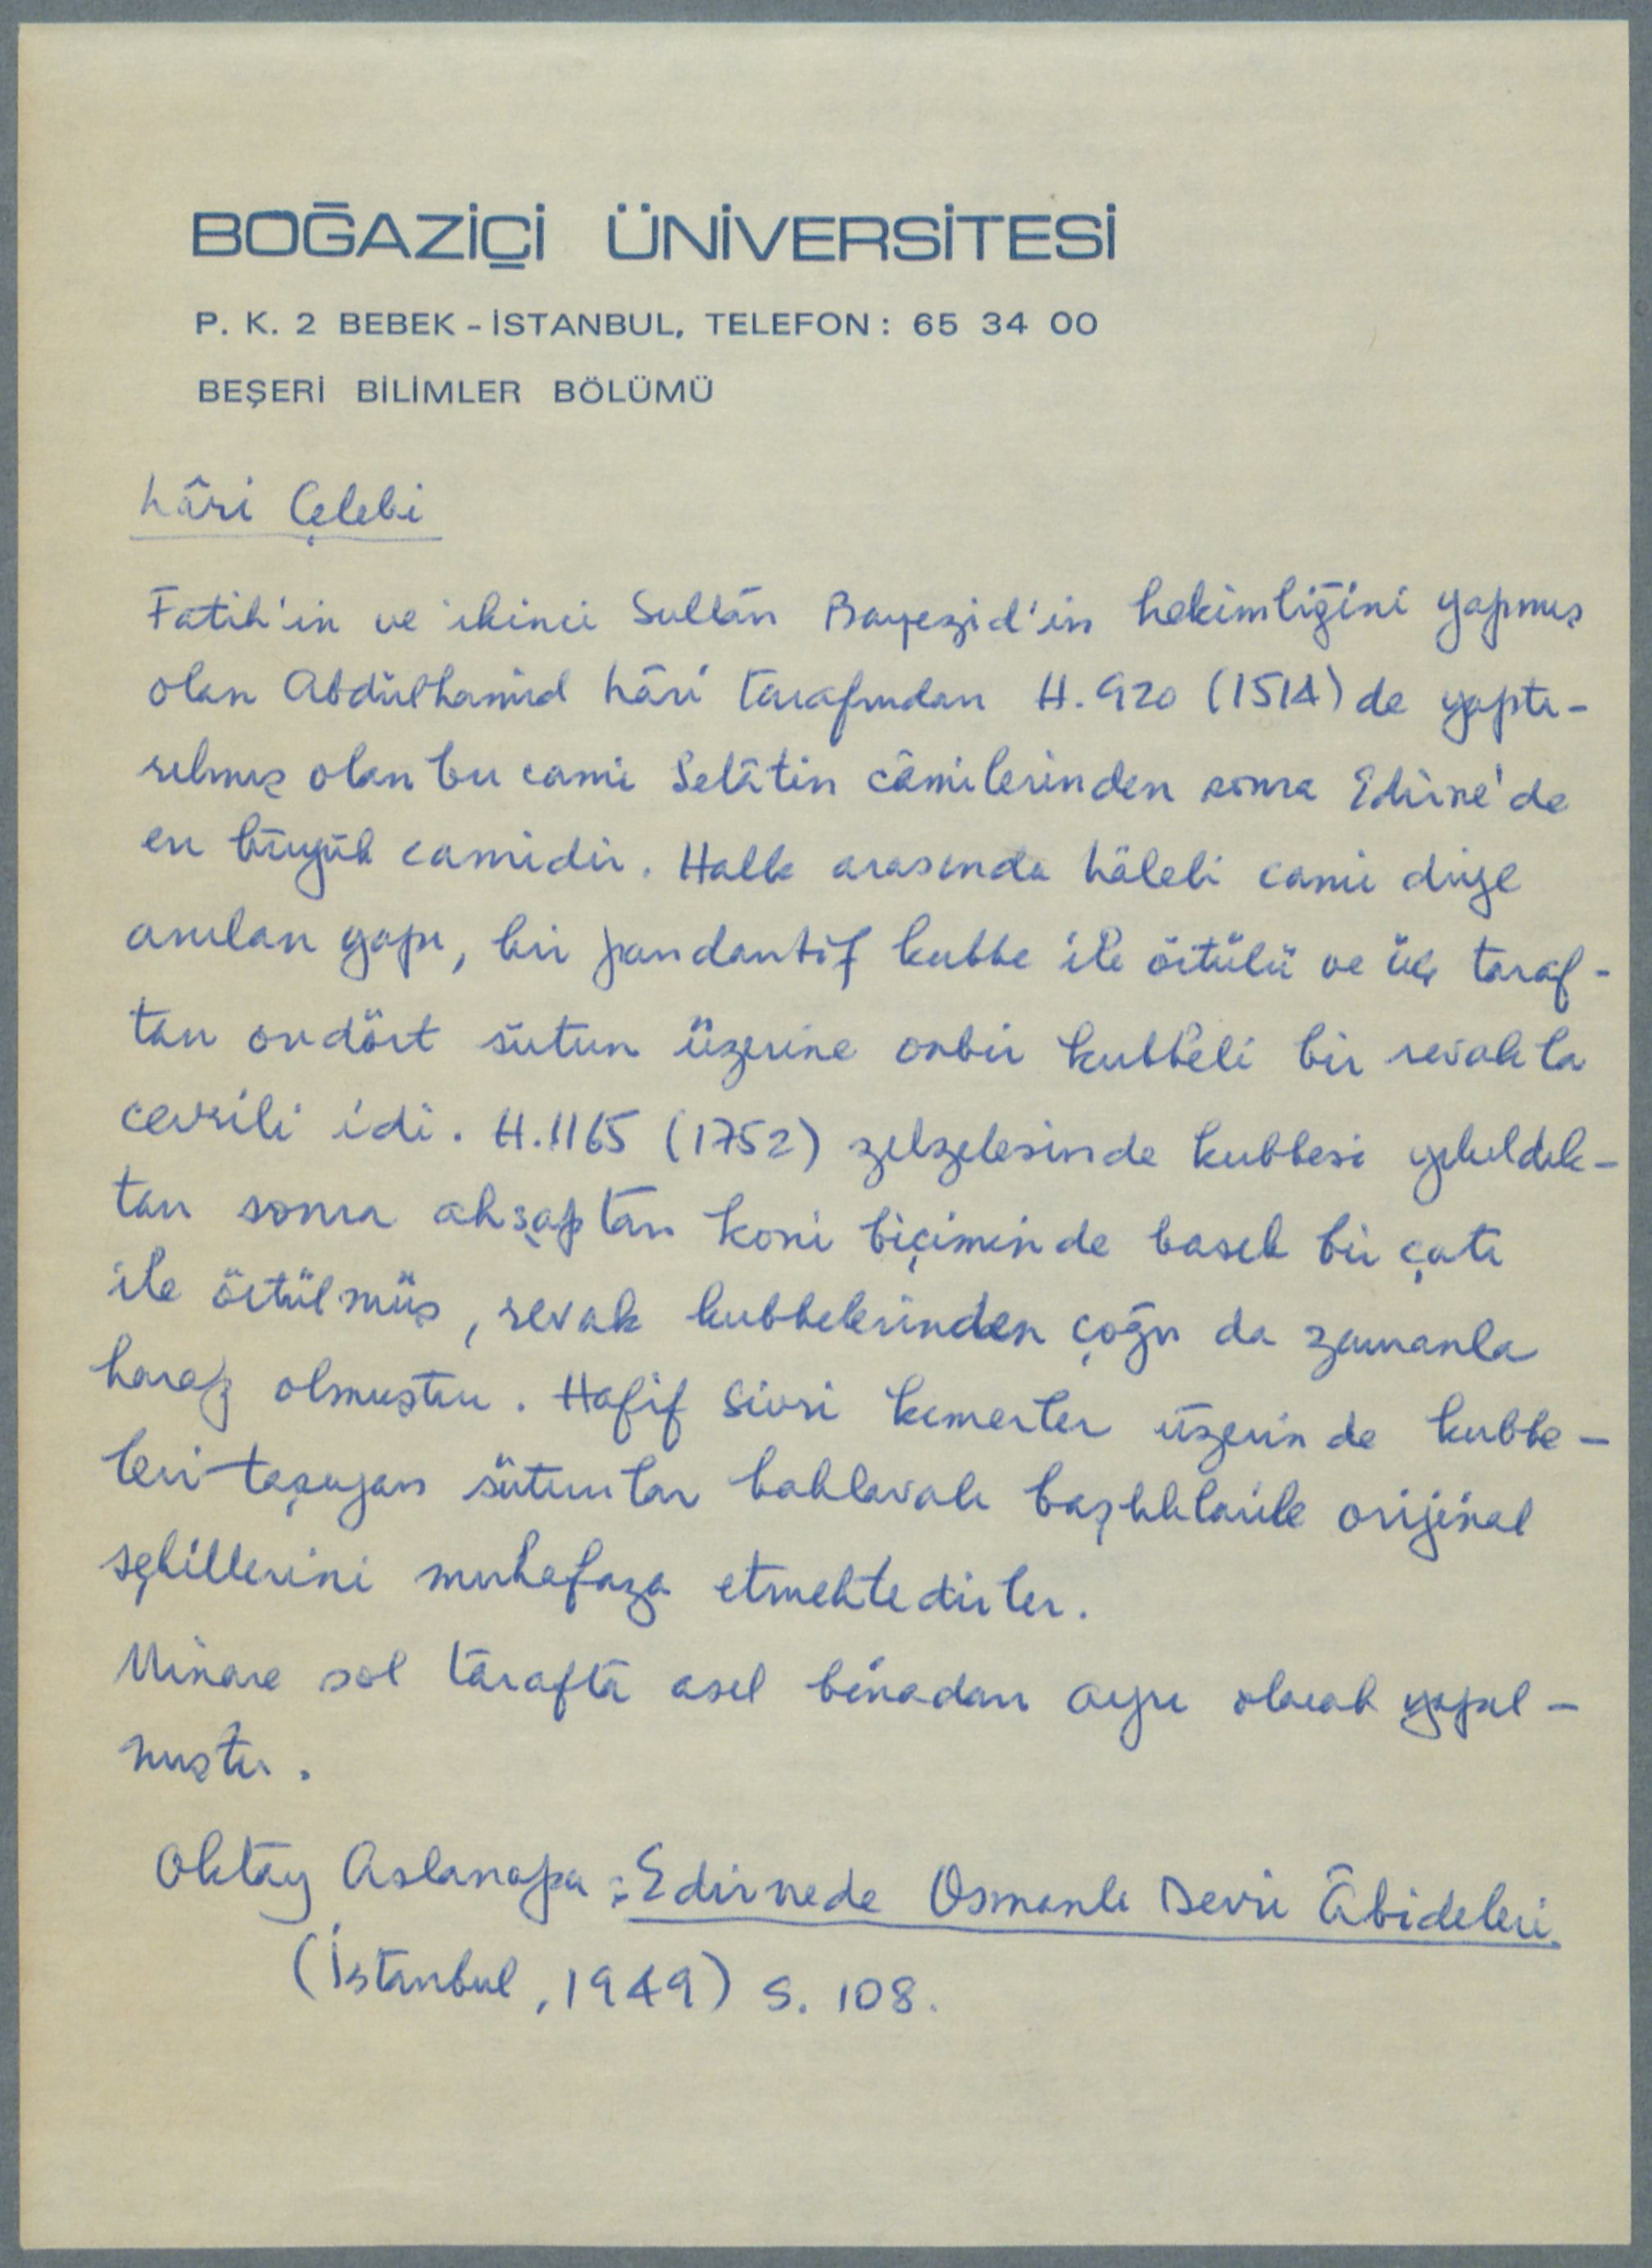 BOĞAZİÇİ ÜNİVERSİTESİ
P. K. 2 BEBEK - İSTANBUL, TELEFON : 65 34 00
BEŞERİ BİLİMLER BÖLÜMÜ
Lâri Çelebi
Fatih'in ve ikinci Sultân Bayezid'in hekimliğini yapmış
olan Abdülhamid Lâri tarafından H. 920 (1514) de yaptı-
rılmış olan bu cami Selâtin câmilerinden sonra Edirne'de
en büyük camidir. Halk arasında lâleli camii diye
anılan yapı, bir pandantif kubbe ile örtülü ve üç taraf-
tan ondört sütun üzerine onbir kubbeli bir revakla
çevrili idi. H. 1165 (1752) zelzelesinde kubbesi yıkıldık-
tan sonra ahşaptan koni biçiminde basık bir çatı
ile örtülmüş, revak kubbelerinden çoğu da zamanla
harap olmuştur. Hafif sivri kemerler üzerinde kubbe-
leri taşıyan sütunlar baklavalı başlıklarile orijinal
şekillerini muhafaza etmektedirler.
Minare sol tarafta asıl binadan ayrı olarak yapıl-
mıştır.
Oktay Aslanapa : Edirnede Osmanlı Devri Âbideleri
(İstanbul, 1949) s. 108.